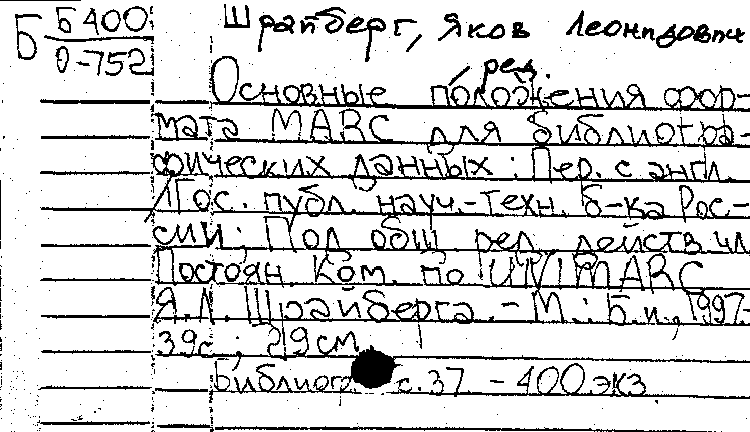 Б Б400 Шрапберг, Яков Леонидович
О-752 , ред.
Основные положения фор-
мата MARC для библиогра-
фических данных : Пер. с англ.
/ Гос. публ. науч.-техн. б-ка Рос-
сии; Под общ. ред. действ. чл.
Постоян. Ком. по UNIMARC
Я.Л. Шрайберга. - М.: Б.и., 1997.-
39с.; 29 см.
Библиогр. с.37. - 400 экз.